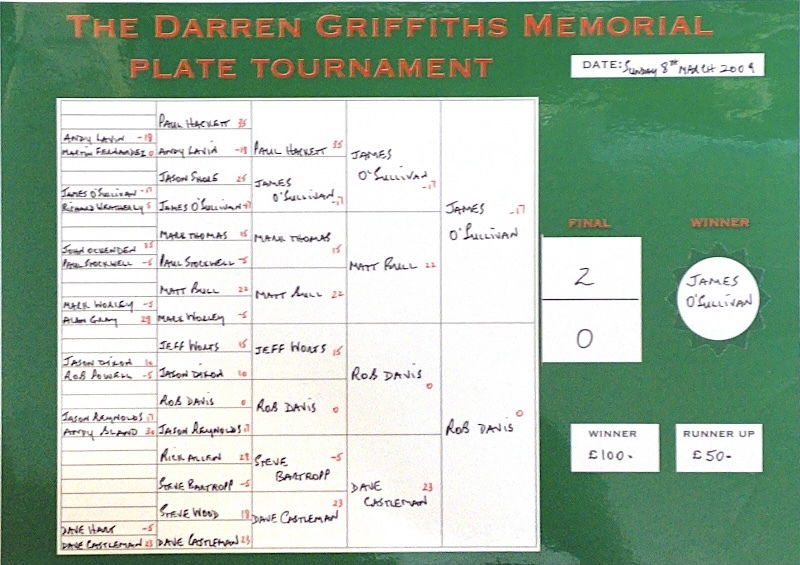 THE DARREN GRIFFITHS MEMORIAL
PLATE TOURNAMENT
DATE: SUNDAY 8TH MARCH 2009
ANDY LAVIN -18
MARTIN FERNANDEZ 0
JAMES O'SULLIVAN -17
RICHARD WEATHERLY 5
JOHN OCKENDEN 35
PAUL STOCKWELL -5
MARK WORLEY -5
ALAN GRAY 28
JASON DIXON 10
ROB POWELL -5
JASON REYNOLDS 17
ANDY BLAND 30
DAVE HART -5
DAVE CASTLEMAN 23
PAUL HACKETT 35
ANDY LAVIN -18
JASON SHORE 25
JAMES O'SULLIVAN -17
MARK THOMAS 15
PAUL STOCKWELL -5
MATT BULL 22
MARK WORLEY -5
JEFF WORTS 15
JASON DIXON 10
ROB DAVIS 0
JASON REYNOLDS 17
RICK ALLEN 28
STEVE BARTROPP -5
STEVE WOOD 18
DAVE CASTLEMAN 23
PAUL HACKETT 35
JAMES
O'SULLIVAN -17
MARK THOMAS
15
MATT BULL 22
JEFF WORTS 15
ROB DAVIS 0
STEVE -5
BARTROPP
23
DAVE CASTLEMAN
JAMES
O'SULLIVAN
-17
MATT BULL 22
ROB DAVIS
0
DAVE 23
CASTLEMAN
JAMES -17
O'SULLIVAN
0
ROB DAVIS
FINAL
2
0
WINNER
JAMES
O'SULLIVAN
WINNER
£100-
RUNNER UP
£50-